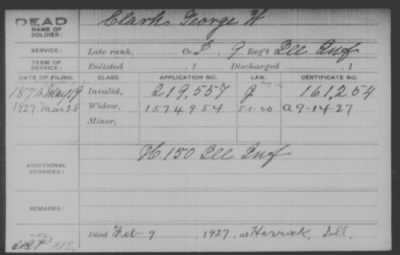 DEAD
NAME OF SOLDIER: Clark George W
SERVICE: Late rank, Co. F, 9 Reg't Ill Inf
TERM OF SERVICE: Enlisted , 1 Discharged , 1
DATE OF FILING. CLASS. APPLICATION NO. LAW. CERTIFICATE NO.
1876 May 9 Invalid, 219,557 161,254
1927 Mar 28 Widow, 1574954 5-1-20 A9-14-27
Minor,
ADDITIONAL SERVICES: H. 150 Ill Inf
REMARKS:
Died Feb 9 1927, at Herrick, Ill.